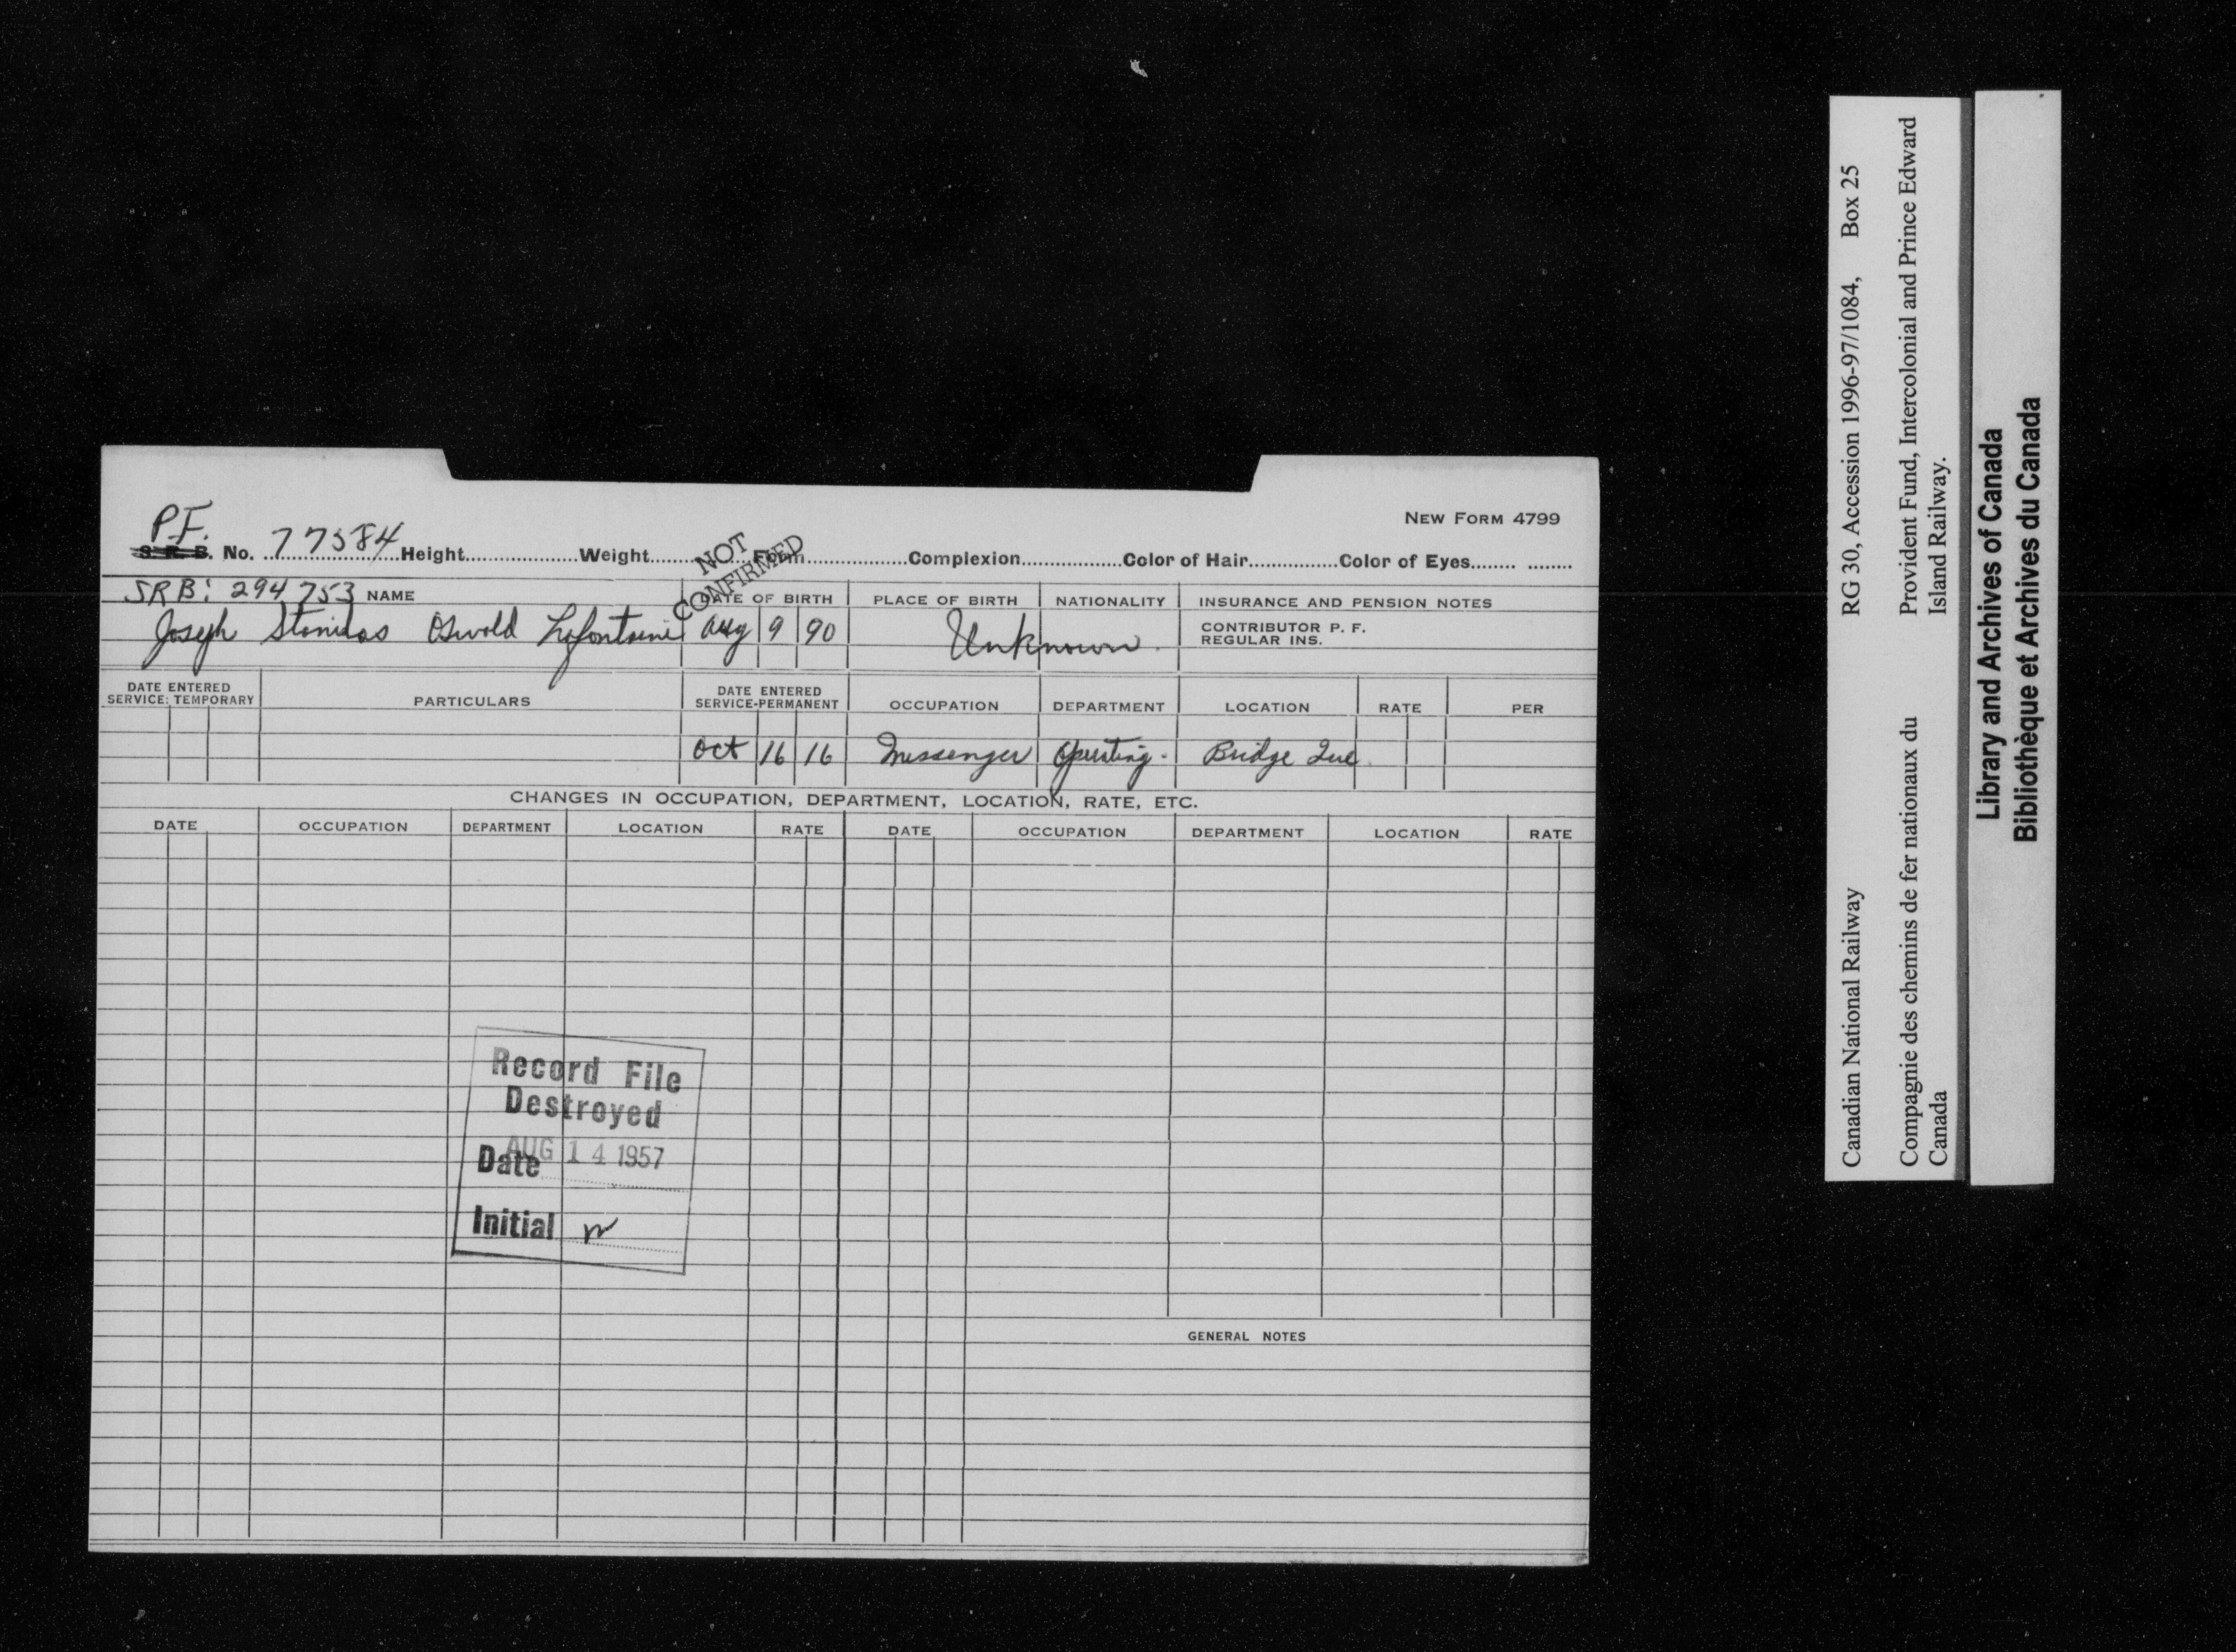 NEW FORM 4799
P.F.
S. R. B. No. 77584 Height Weight Form Complexion Color of Hair Color of Eyes
NOT CONFIRMED
SRB: 294753 NAME DATE OF BIRTH PLACE OF BIRTH NATIONALITY INSURANCE AND PENSION NOTES
Joseph Stanislas Oswald Lafontaine Aug 9 90 Unknown.
CONTRIBUTOR P. F.
REGULAR INS.
DATE ENTERED SERVICE: TEMPORARY PARTICULARS DATE ENTERED SERVICE-PERMANENT OCCUPATION DEPARTMENT LOCATION RATE PER
Oct 16 16 Messenger Operating - Bridge Que
CHANGES IN OCCUPATION, DEPARTMENT, LOCATION, RATE, ETC.
DATE OCCUPATION DEPARTMENT LOCATION RATE DATE OCCUPATION DEPARTMENT LOCATION RATE
Record File
Destroyed
Date AUG 14 1957
Initial
GENERAL NOTES
Canadian National Railway RG 30, Accession 1996-97/1084, Box 25
Compagnie des chemins de fer nationaux du Provident Fund, Intercolonial and Prince Edward
Canada Island Railway.
Library and Archives of Canada
Bibliothèque et Archives du Canada